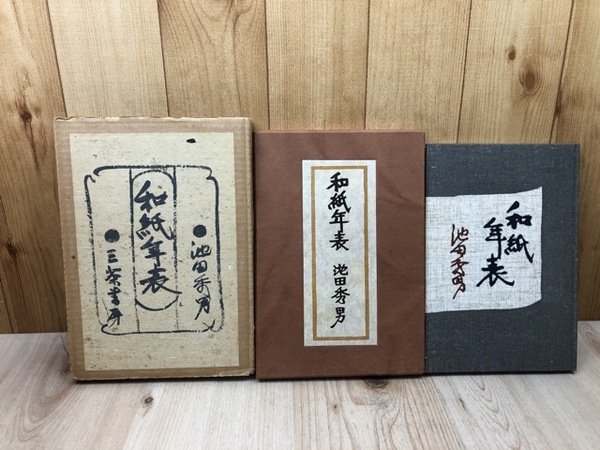 和紙年表
池田秀男
三茶書房
和紙年表 池田秀男
和紙
年表
池田秀男